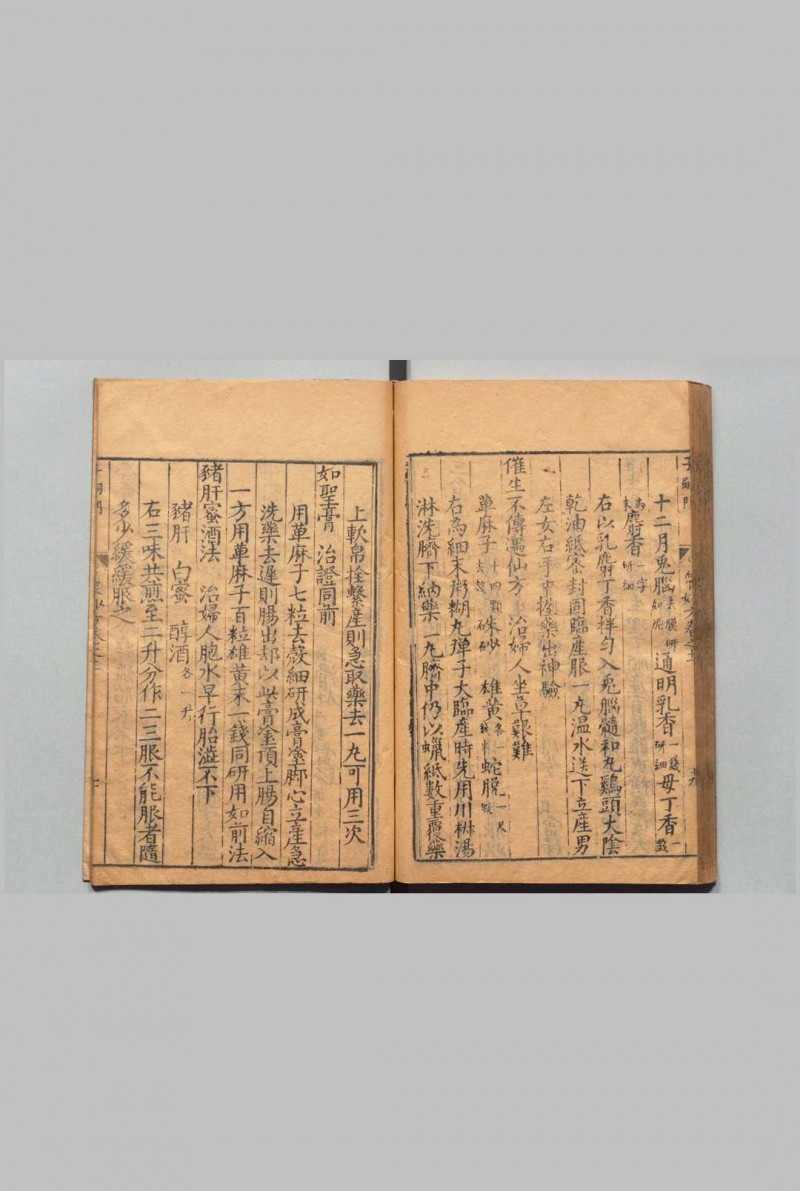 十二月兎腦去膜研如泥通明乳香一錢研細母丁香一錢
末麝香一字研細
右以乳麝丁香拌勻入兎腦髓和丸鷄頭大陰
乾油紙密封固臨產服一丸溫水送下立產男
左女右手中握藥出神驗
催生不傳遇仙方　治婦人坐草艱難
萆麻子十四顆去殻　硃砂　雄黃各一錢半蛇脫一尺
右為細末粥糊丸彈子大臨產時先用川椒湯
淋洗臍下納藥一丸臍中仍以蠟紙數重覆藥
上軟帛拴繫產則急取藥去一丸可用三次
如聖膏　治證同前
用萆麻子七粒去殻細研成膏塗脚心立產急
洗藥去遲則腸出却以此膏塗頂上腸自縮入
一方用萆麻子百粒雄黃末一錢同研用如前法
豬肝蜜酒法　治婦人胞水早行胎澁不下
豬肝　白蜜　醇酒各一升
右三味共煎至二升分作二三服不能服者隨
多少緩緩服之
子嗣門